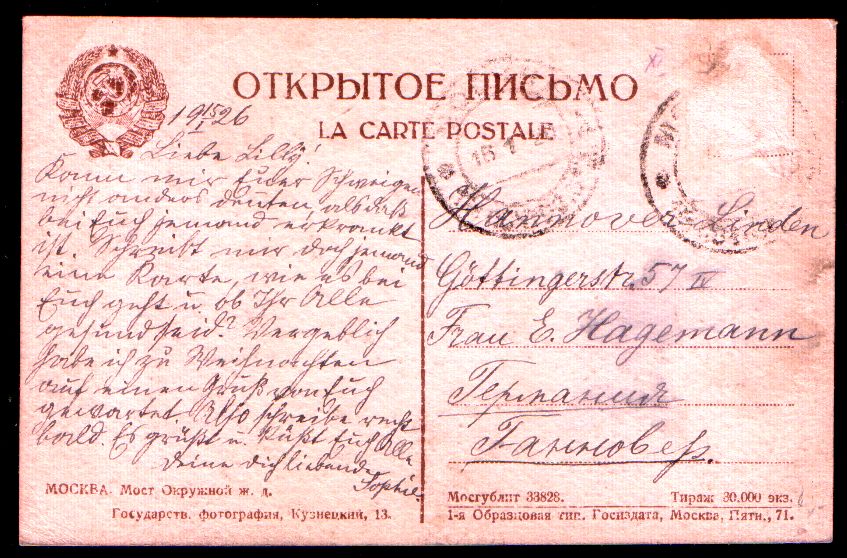 ОТКРЫТОЕ ПИСЬМО
LA CARTE POSTALE
19 15/I 26
Liebe Lilly!
Kann mir Euer Schweigen
nicht anders denken als daß
bei Euch jemand erkrankt
ist. Schreibt mir doch jemand
eine Karte, wie es bei
Euch geht u. ob Ihr Alle
gesund seid? Vergeblich
habe ich zu Weihnachten
auf einen Gruß von Euch
gewartet. Also schreibe recht
bald. Es grüßt u. küßt Euch Alle
Deine Dich liebende
Sophie.
МОСКВА. Мост Окружной ж. д.
Государств. фотография, Кузнецкий, 13.
Hannover Linden
Göttingerstr. 57 IV
Frau E. Hagemann
Германия
Ганновер.
Мосгублит 33828. Тираж 30.000 экз.
1-я Образцовая тип. Госиздата, Москва, Пятн., 71.